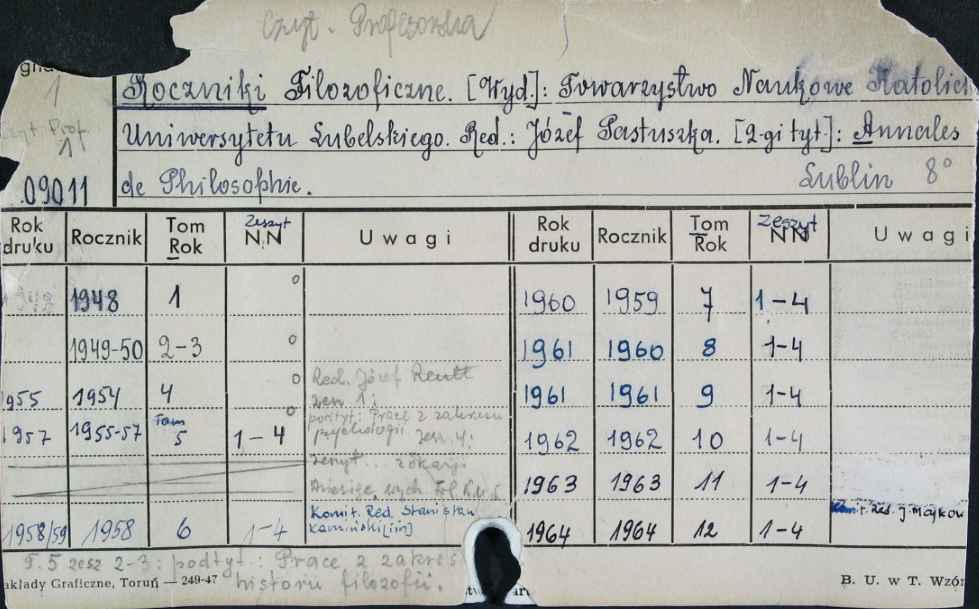 Czyt. Profesorska
1
Roczniki Filozoficzne. [Wyd]: Towarzystwo Naukowe Katolick
Czyt. Prof
1
Uniwersytetu Lubelskiego. Red.: Józef Pastuszka. [2-gi tyt]: Annales
09011 de Philosophie. Lublin 8°
Rok druku Rocznik Tom Rok Zeszyt N.N Uwagi Rok druku Rocznik Tom Rok Zeszyt NN Uwagi
1948 1948 1 o 1960 1959 7 1-4
1949-50 2-3 o 1961 1960 8 1-4
1955 1954 4 o Red. Józef Reutt zesz. 1; 1961 1961 9 1-4
1957 1955-57 Tom 5 1-4 o podtyt: Prace z zakresu psychologii zesz. 4: 1962 1962 10 1-4
zeszyt... z okazji 1963 1963 11 1-4
1958/59 1958 6 1-4 Komit. Red. Stanisław Kamiński [i in] 1964 1964 12 1-4 Komit. Red. J. Majkow
T. 5 zesz 2-3: podtyt.: Prace z zakres
historii filozofii.
akłady Graficzne, Toruń — 249-47 B. U. w T. Wzór